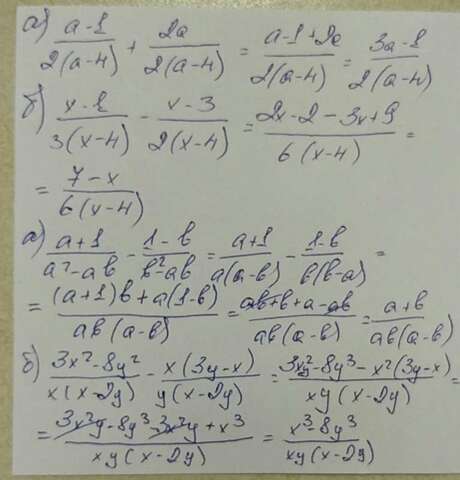 а) (a-1)/(2(a-4)) + 2a/(2(a-4)) = (a-1+2a)/(2(a-4)) = (3a-1)/(2(a-4))
б) (x-1)/(3(x-4)) - (x-3)/(2(x-4)) = (2x-2-3x+9)/(6(x-4)) =
= (7-x)/(6(x-4))
а) (a+1)/(a²-ab) - (1-b)/(b²-ab) = (a+1)/(a(a-b)) - (1-b)/(b(b-a)) =
= ((a+1)b+a(1-b))/(ab(a-b)) = (ab+b+a-ab)/(ab(a-b)) = (a+b)/(ab(a-b))
б) (3x²-8y²)/(x(x-2y)) - (x(3y-x))/(y(x-2y)) = (3x²y-8y³-x²(3y-x))/(xy(x-2y)) =
= (3x²y-8y³-3x²y+x³)/(xy(x-2y)) = (x³-8y³)/(xy(x-2y))